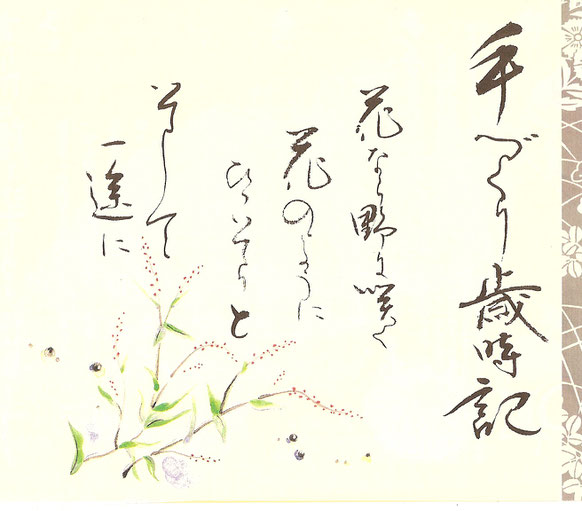 手づくり歳時記
花なら野に咲く
花のように
ひっそりと
そして
一途に